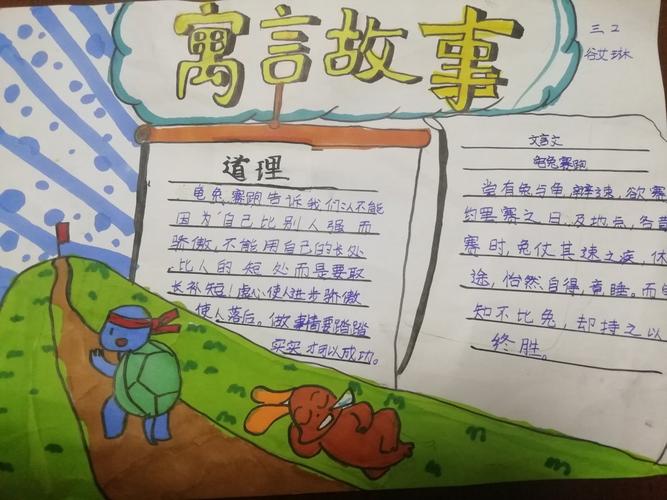 寓言故事
三2
道理
龟兔赛跑告诉我们不能
因为自己比别人强而
骄傲,不能用自己的长处
比人的短处而是要取
长补短!虚心使人进步骄傲
使人落后。做事情要踏踏
实实才可以成功。
文言文
龟兔赛跑
尝有兔与龟,辩速,欲赛
约罢赛之日,及地点,各
赛时,兔仗其速之疾,休
途,怡然自得,竟睡。而
知不比兔,却持之以
终胜。